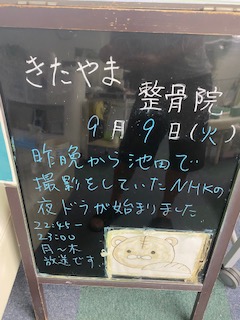 きたやま
整骨院
9月9日(火)
昨晩から池田で
撮影をしていたNHKの
夜ドラが始まりました
22:45〜
23:00
月〜木
放送です。